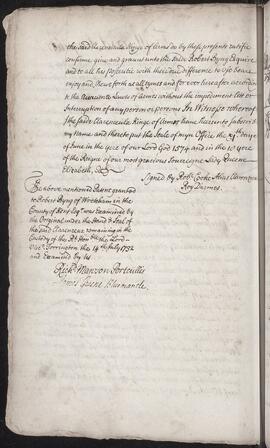 the said Clarencieulx Kinge of Armes do by these presents ratifie
confirme, give and graunte unto the said Robert Byng Esquire
and to all his posteritie with their due difference to use beare
enjoy and shew forth at all tymes and for ever hereafter according
to the Auncient Lawes of Armes without the impediment let or
Interruption of any person or persons In Witness whereof
the saide Clarencieulx Kinge of Armes have hereunto subscribed
my Name and thereto put the Seale of myn Office the
of June in the yere of our Lord God 1574 and in the 16 yere
of the Reigne of our most gracious Sovereigne Lady Queene
Elizabeth, &c
Signed by Robt. Cooke Alias Clarencieulx
Roy Darmes.
The above mentioned Patent granted
to Robert Byng of Wrotham in the
County of Kent Esqr. was Examined by
the Original under the Hand & Seal of
the said Clarencieux remaining in the
Custody of the Rt. Honble. the Lord
Visct. Torrington the 14th July 1752
and Examined by Us
Richd. Mawson Portcullis
Blumantle.